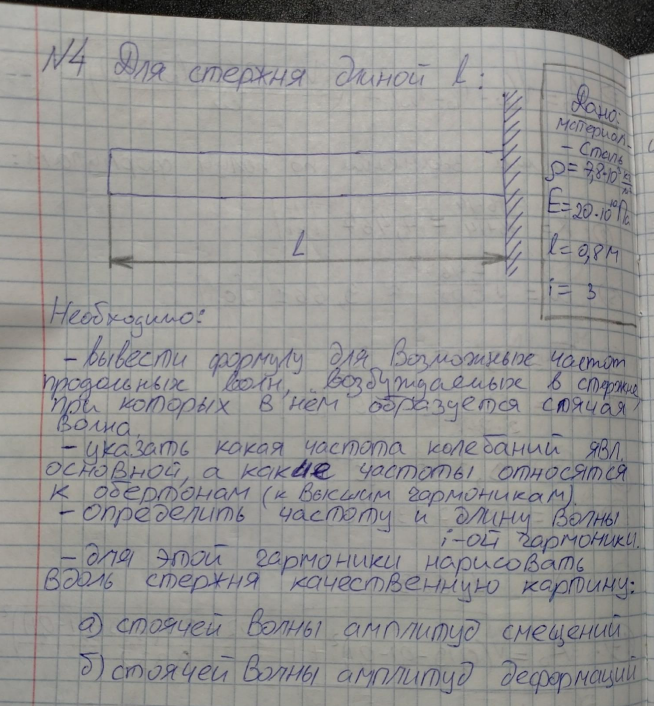 N4 Для стержня длиной l:
Дано:
материал -
- сталь
ρ = 7,8·10³ кг/м
E = 20·10¹⁰ Па
l = 0,8 м
i = 3
L
Необходимо:
- вывести формулу для возможных частот
продольных волн, возбуждаемых в стержне,
при которых в нём образуется стячая
волна.
- указать какая частота колебаний явл.
основной, а какие частоты относятся
к обертонам (к высшим гармоникам).
- определить частоту и длину волны
i-ой гармоники.
- для этой гармоники нарисовать
вдоль стержня качественную картину:
а) стоячей волны амплитуд смещений
б) стоячей волны амплитуд деформаций